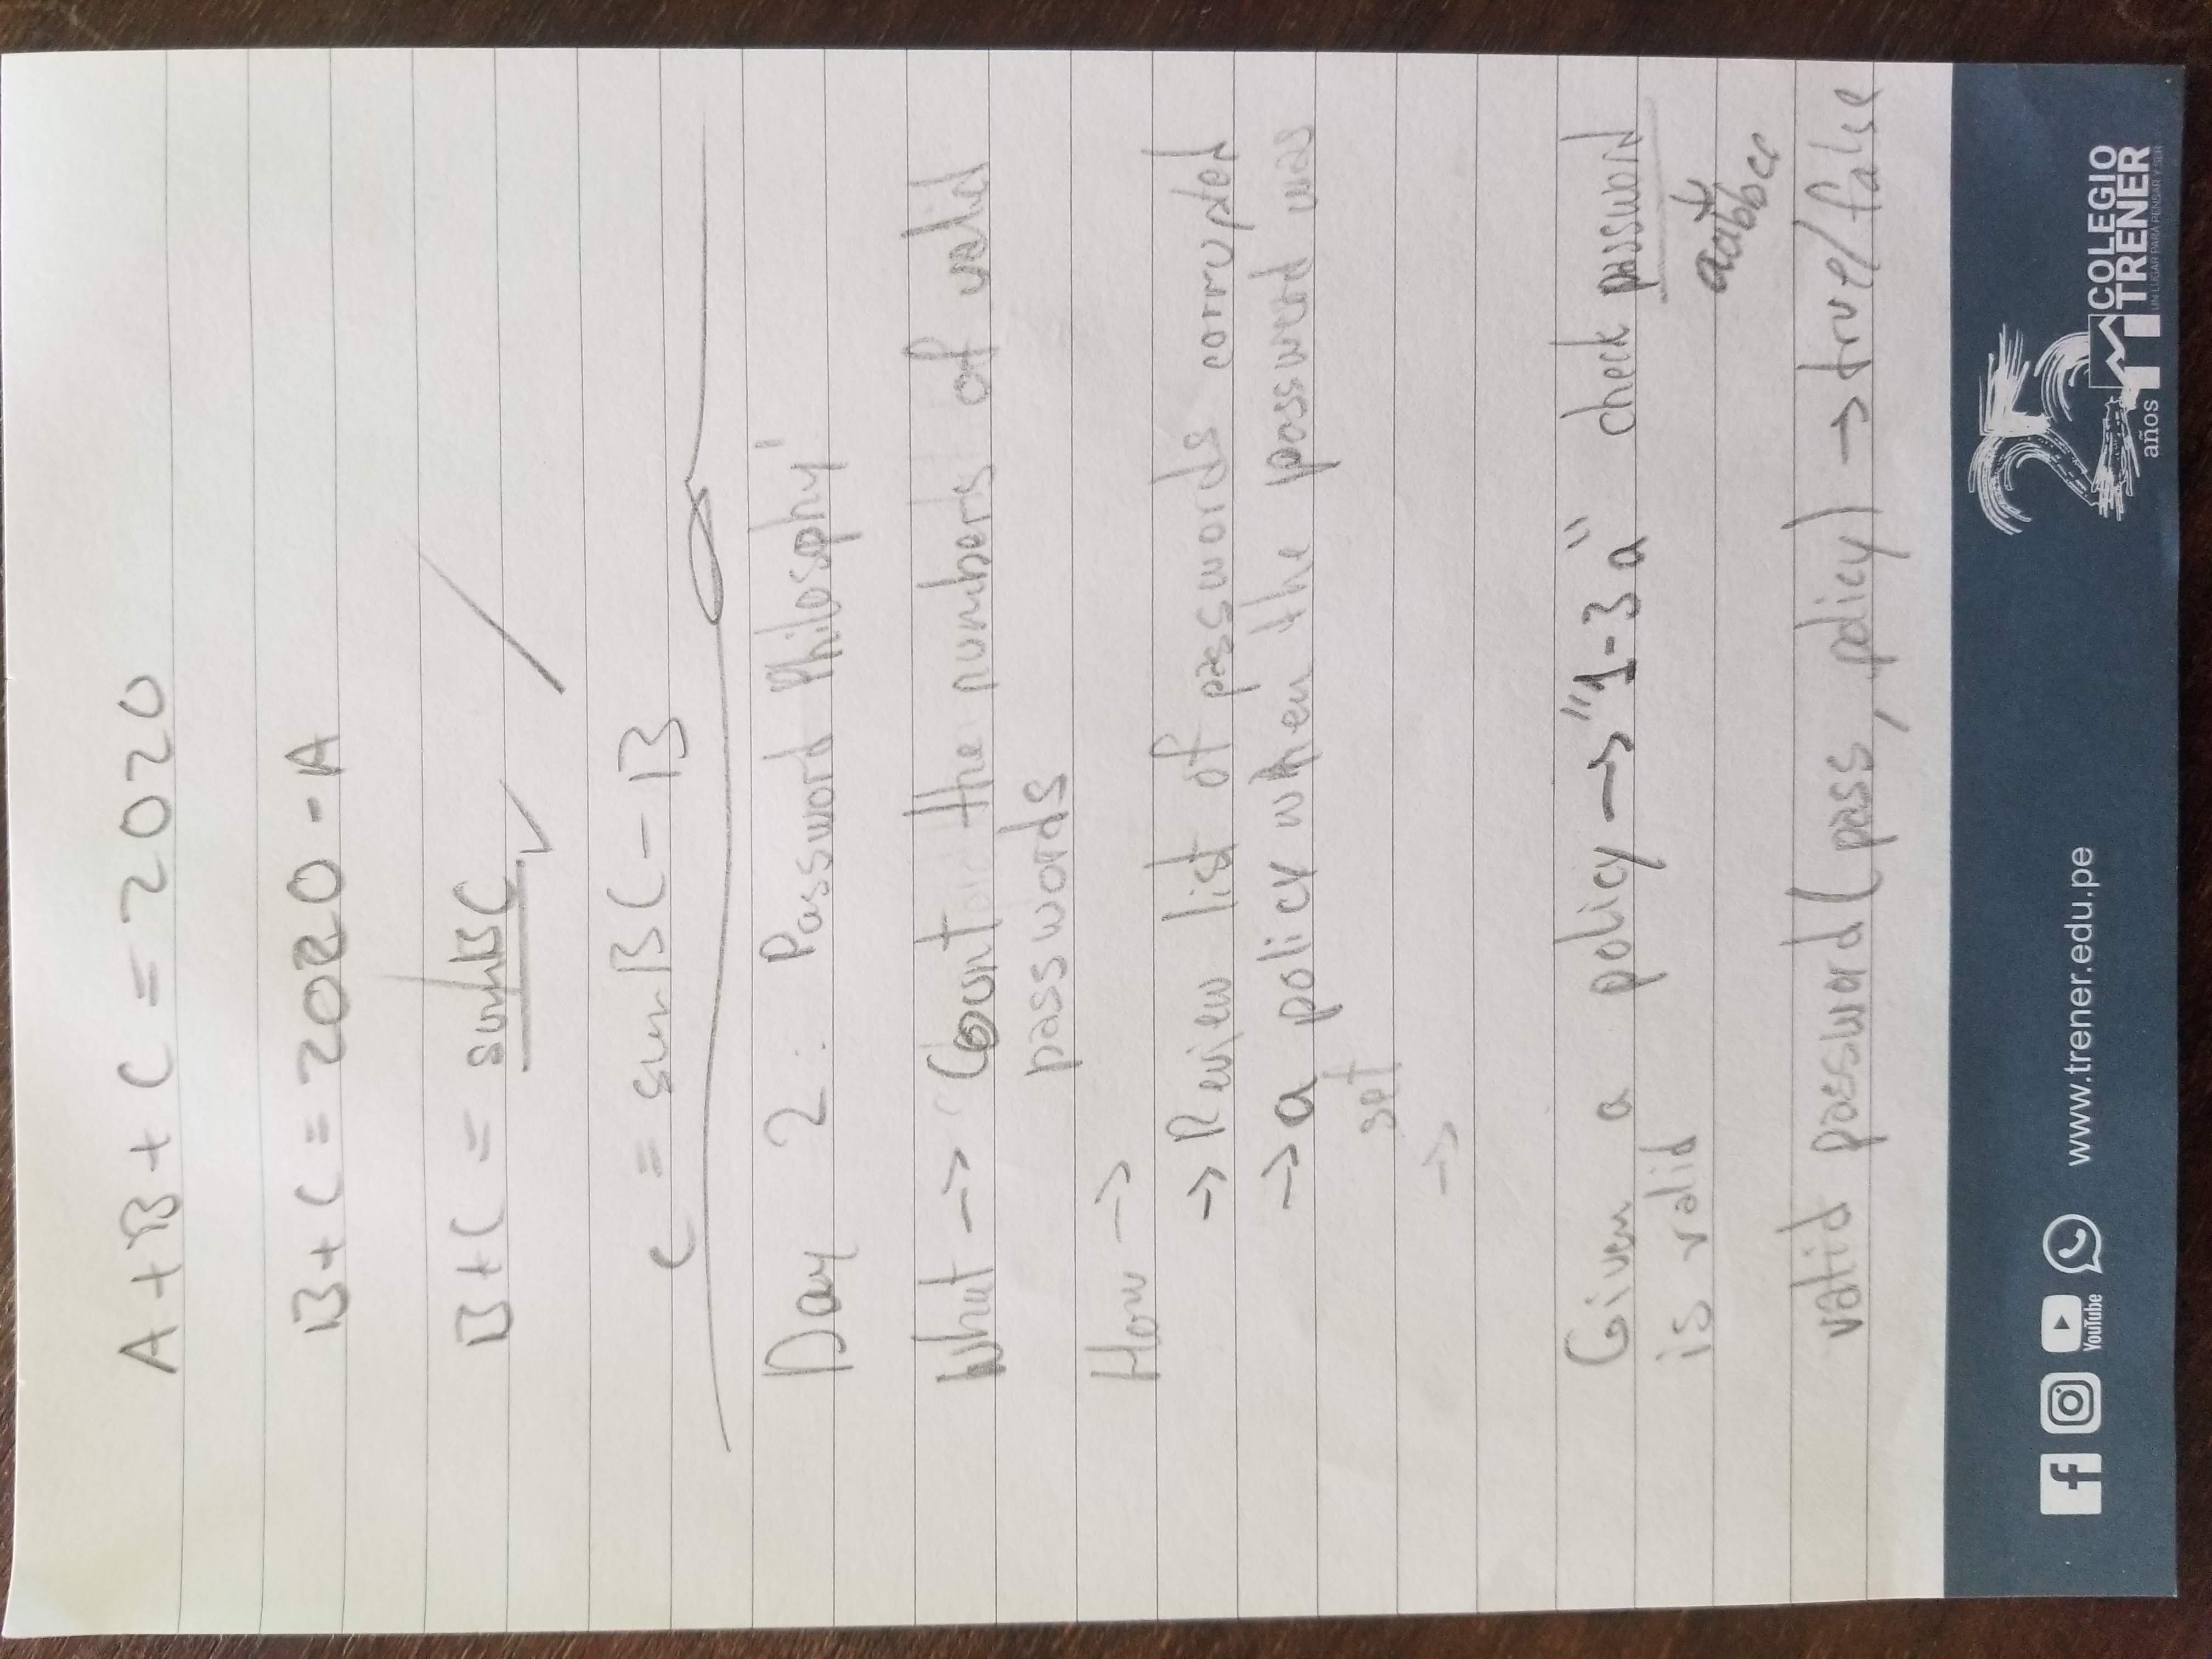 A + B + C = 2020
B + C = 2020 - A
B + C = sumBC
C = sumBC - B
Day 2: Password Philosophy'
What -> Count the numbers of valid
passwords
How ->
-> Review list of passwords corrupted
-> a policy when the password was
set
->
Given a policy -> "1-3 a" check password
is valid
aabbcc
valid password(pass, policy) -> true/false
YouTube
www.trener.edu.pe
25
años
COLEGIO
TRENER
UN LUGAR PARA PENSAR Y SER